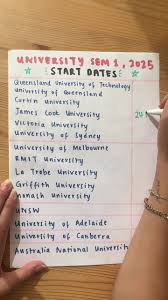 UNIVERSITY SEM 1, 2025
START DATES
Queensland University of Technology
University of Queensland
Curtin University
James Cook University
Victoria University
University of Sydney
University of Melbourne
RMIT University
La Trobe University
Griffith University
Monash University
UNSW
University of Adelaide
University of Canberra
Australia National University